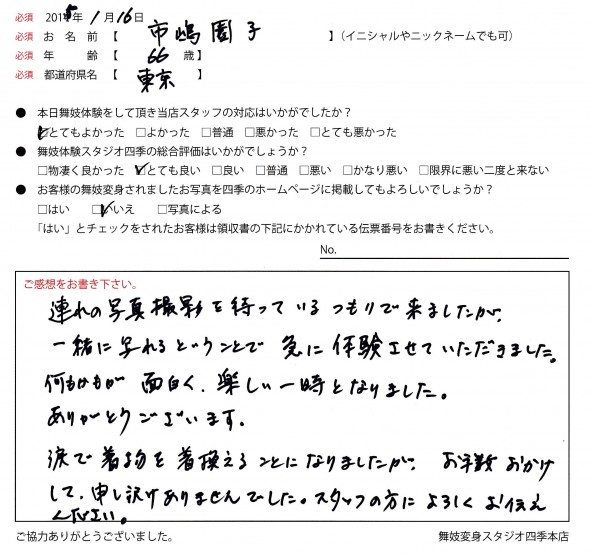 必須 2015年 1月 16日
必須 お 名 前 【 市嶋 圏子 】(イニシャルやニックネームでも可)
必須 年 齢 【 66 歳】
必須 都道府県名 【 東京 】
● 本日舞妓体験をして頂き当店スタッフの対応はいかがでしたか?
☑とてもよかった □よかった □普通 □悪かった □とても悪かった
● 舞妓体験スタジオ四季の総合評価はいかがでしょうか?
□物凄く良かった ☑とても良い □良い □普通 □悪い □かなり悪い □限界に悪い二度と来ない
● お客様の舞妓変身されましたお写真を四季のホームページに掲載してもよろしいでしょうか?
□はい ☑いいえ □写真による
「はい」とチェックをされたお客様は領収書の下記にかかれている伝票番号をお書きください。
No.
ご感想をお書き下さい。
連れの写真撮影を待っているつもりで来ましたが、
一緒に写れるということで 急に体験させていただきました。
何もかもが 面白く、楽しい一時となりました。
ありがとうございます。
涙で着物を着換えることになりましたが、お手数おかけ
して、申し訳ありませんでした。スタッフの方によろしくお伝え
ください。
ご協力ありがとうございました。
舞妓変身スタジオ四季本店